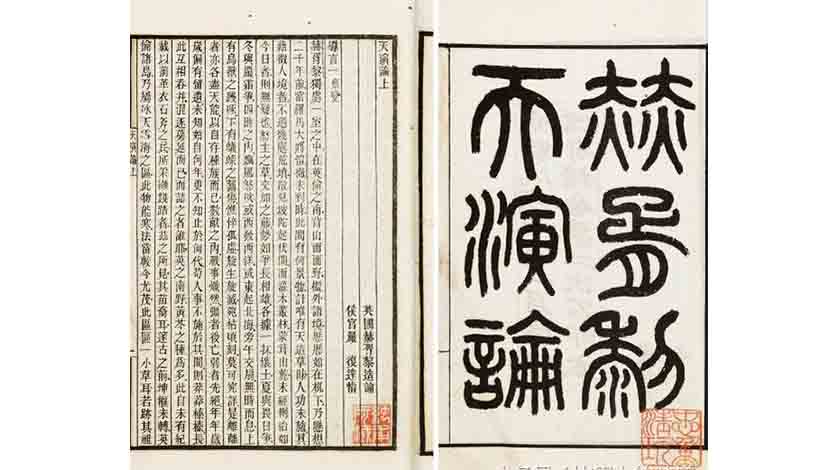 赫胥黎
天演論
天演論上
英國赫胥黎造論
侯官嚴　復達恉
導言一 察變
赫胥黎獨處一室之中在英倫之南背山而面野檻外諸境歷歷如在机下乃懸想
二千年前當羅馬大將愷徹未到時此間有何景物計唯有天造草昧人功未施其
藉徵人境者不過幾處荒墳散見坡陀起伏間而灌木叢林蒙茸山麓未經刪治如
今日者則無疑也怒生之草交加之藤勢如爭長相雄各據一抔壤土夏與畏日爭
冬與嚴霜爭四時之內飄風怒吹或西發西洋或東起北海旁午交扇無時而息上
有鳥獸之踐啄下有蟻蝝之齧傷憔悴孤虛旋生旋滅菀枯頃刻莫可究詳是離離
者亦各盡天能以自存種族而已數畝之內戰事熾然彊者後亡弱者先絕年年歲
歲偏有留遺未知始自何年更不知止於何代苟人事不施於其間則莽莽榛榛長
此互相吞并混逐蔓延而已而詰之者誰耶英之南野黃芩之種爲多此自未有紀
載以前革衣石斧之民所采擷踐踏者茲之所見其苗裔耳邃古之前坤樞未轉英
倫諸島乃屬冰天雪海之區此物能寒法當較今尤茂此區區一小草耳若跡其祖
天演論上